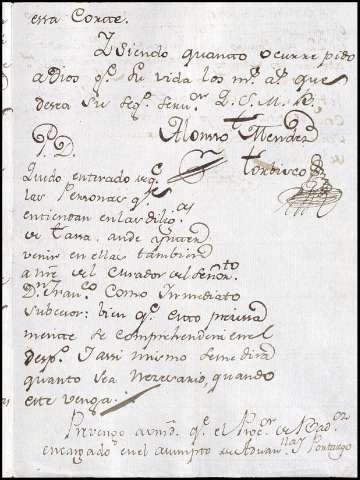 esta Corte.
Y siendo quanto ocurre pido
a Dios q.e su vida los m.s a.s que
desea su seg.o serv.or Q. S. M. B.
Alonso Mendez
P. D.
Quedo enterado de q.e
las Personas q.e
entiendan en las dilig.as
de tasa. ande
venir en ellas tambien
a nre del Curador del Señor.to
D.n Fran.co Como Inmediato
subcesor: bien q.e esto precisa
mente se comprehenderà en el
desp.o Y assi mismo se me dirà
quanto sea nezesario, quando
este venga.
Prevengo a vmd. q.e el Proc.or de
encargado en el asumpto de